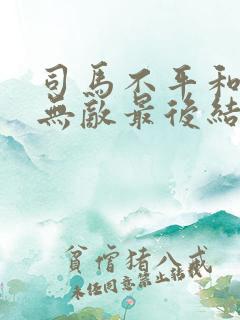 司馬不平和
無敵最後結
貧僧猪八戒
未经同意禁止转载